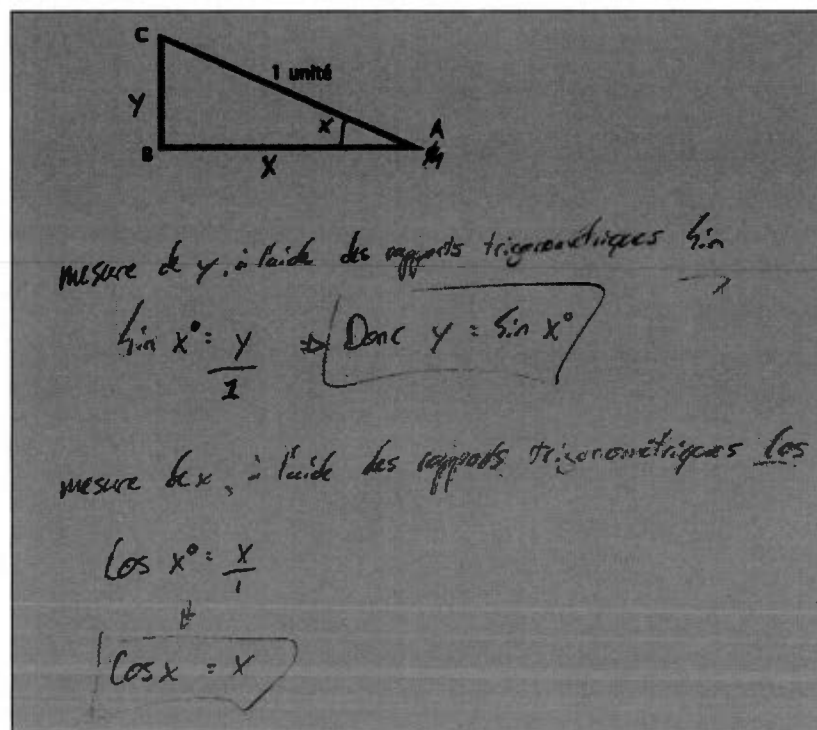 C
1 unité
Y
x
A
B
X
mesure de y, à l'aide des rapports trigonométriques Sin
Sin x° = y
1
⇒ Donc y = Sin x°
mesure de x, à l'aide des rapports trigonométriques Cos
Cos x° = x
1
Cos x = x